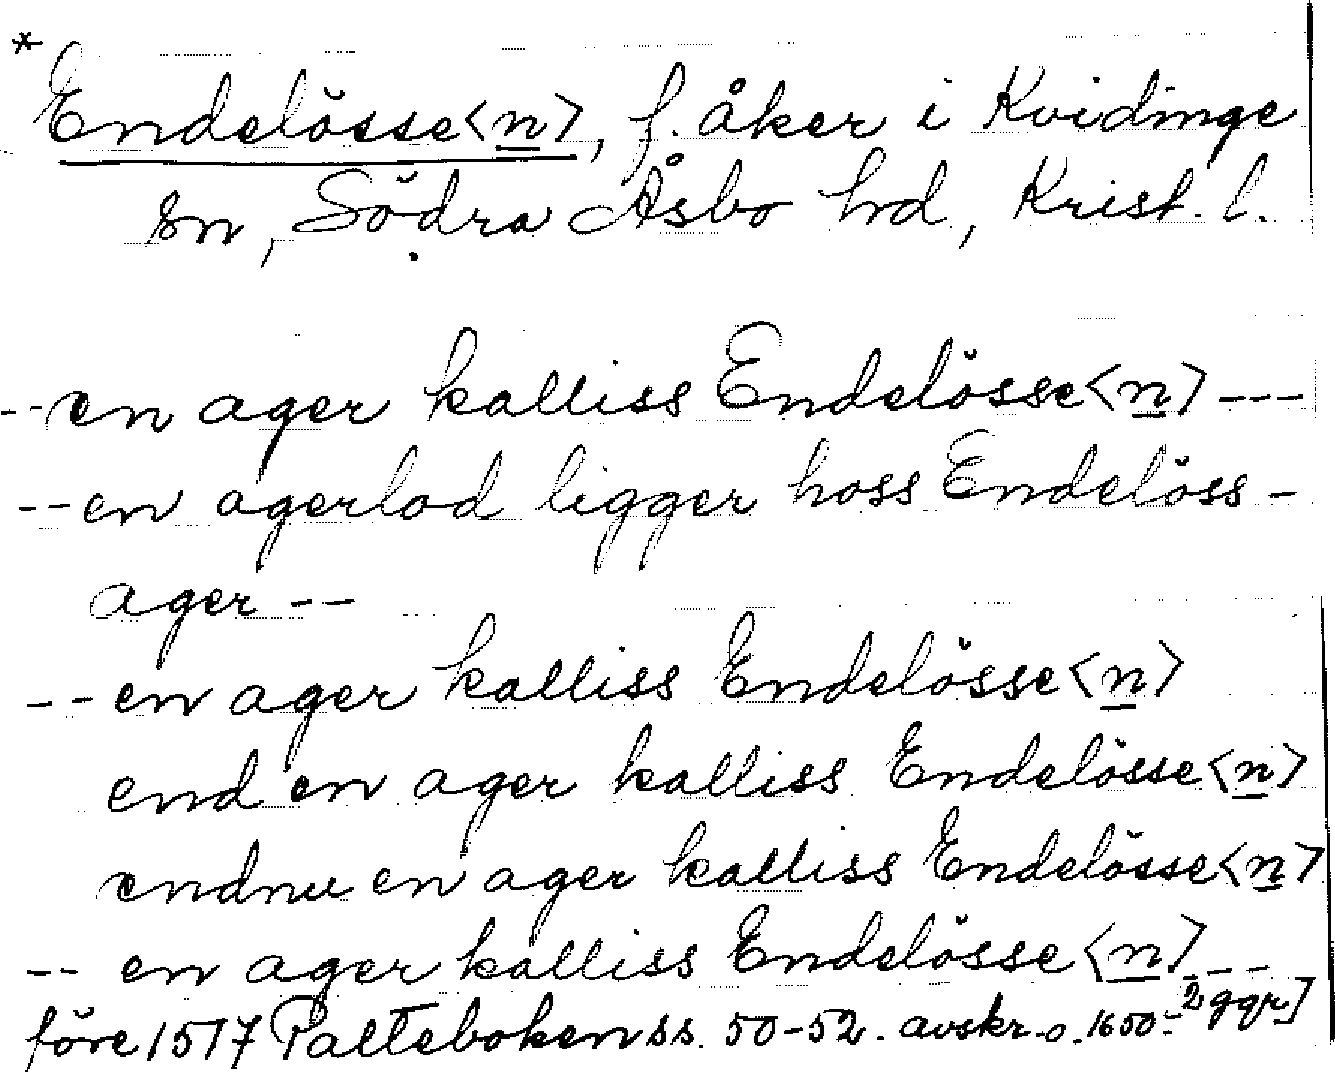 * Endelösse<n>, f. åker i Kvidinge
sn, Södra Åsbo hd, Krist. l.
--en ager kalliss Endelösse<n>---
--en agerlod ligger hoss Endelöss-
ager--
--en ager kalliss Endelösse<n>
end en ager kalliss Endelösse<n>
endnu en ager kalliss Endelösse<n>
-- en ager kalliss Endelösse<n>---
2 ggr]
före 1517 Palteboken ss. 50-52. avskr. o. 1650-